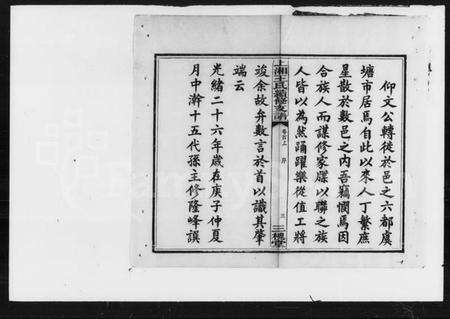 仰文公轉徙於邑之六都虞
塘市居焉自此以來人丁繁庶
星散於數邑之內吾竊憫焉因
合族人而謀修家牒以聯之族
人皆以為然踴躍樂從值工將
上湘王氏續修支譜
卷首上 序
三
三槐堂
竣余故弁數言於首以識其肇
端云
光緒二十六年歲在庚子仲夏
月中澣十五代孫主修隆峰譔